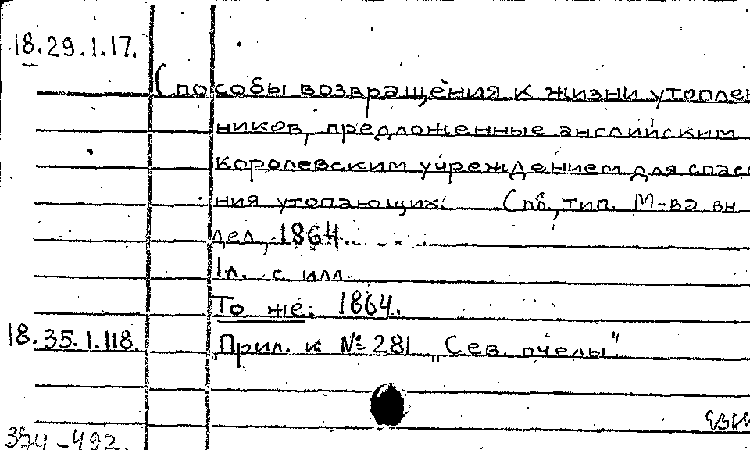 18.29.1.17.
Способы возвращения к жизни утоплен
ников, предложенные английским
королевским учреждением для спасе
ния утопающих. Спб, тип. М-ва вн.
дел, 1864.
1л. с илл.
То же. 1864.
18.35.1.118. Прил. к № 281 „Сев. пчелы"